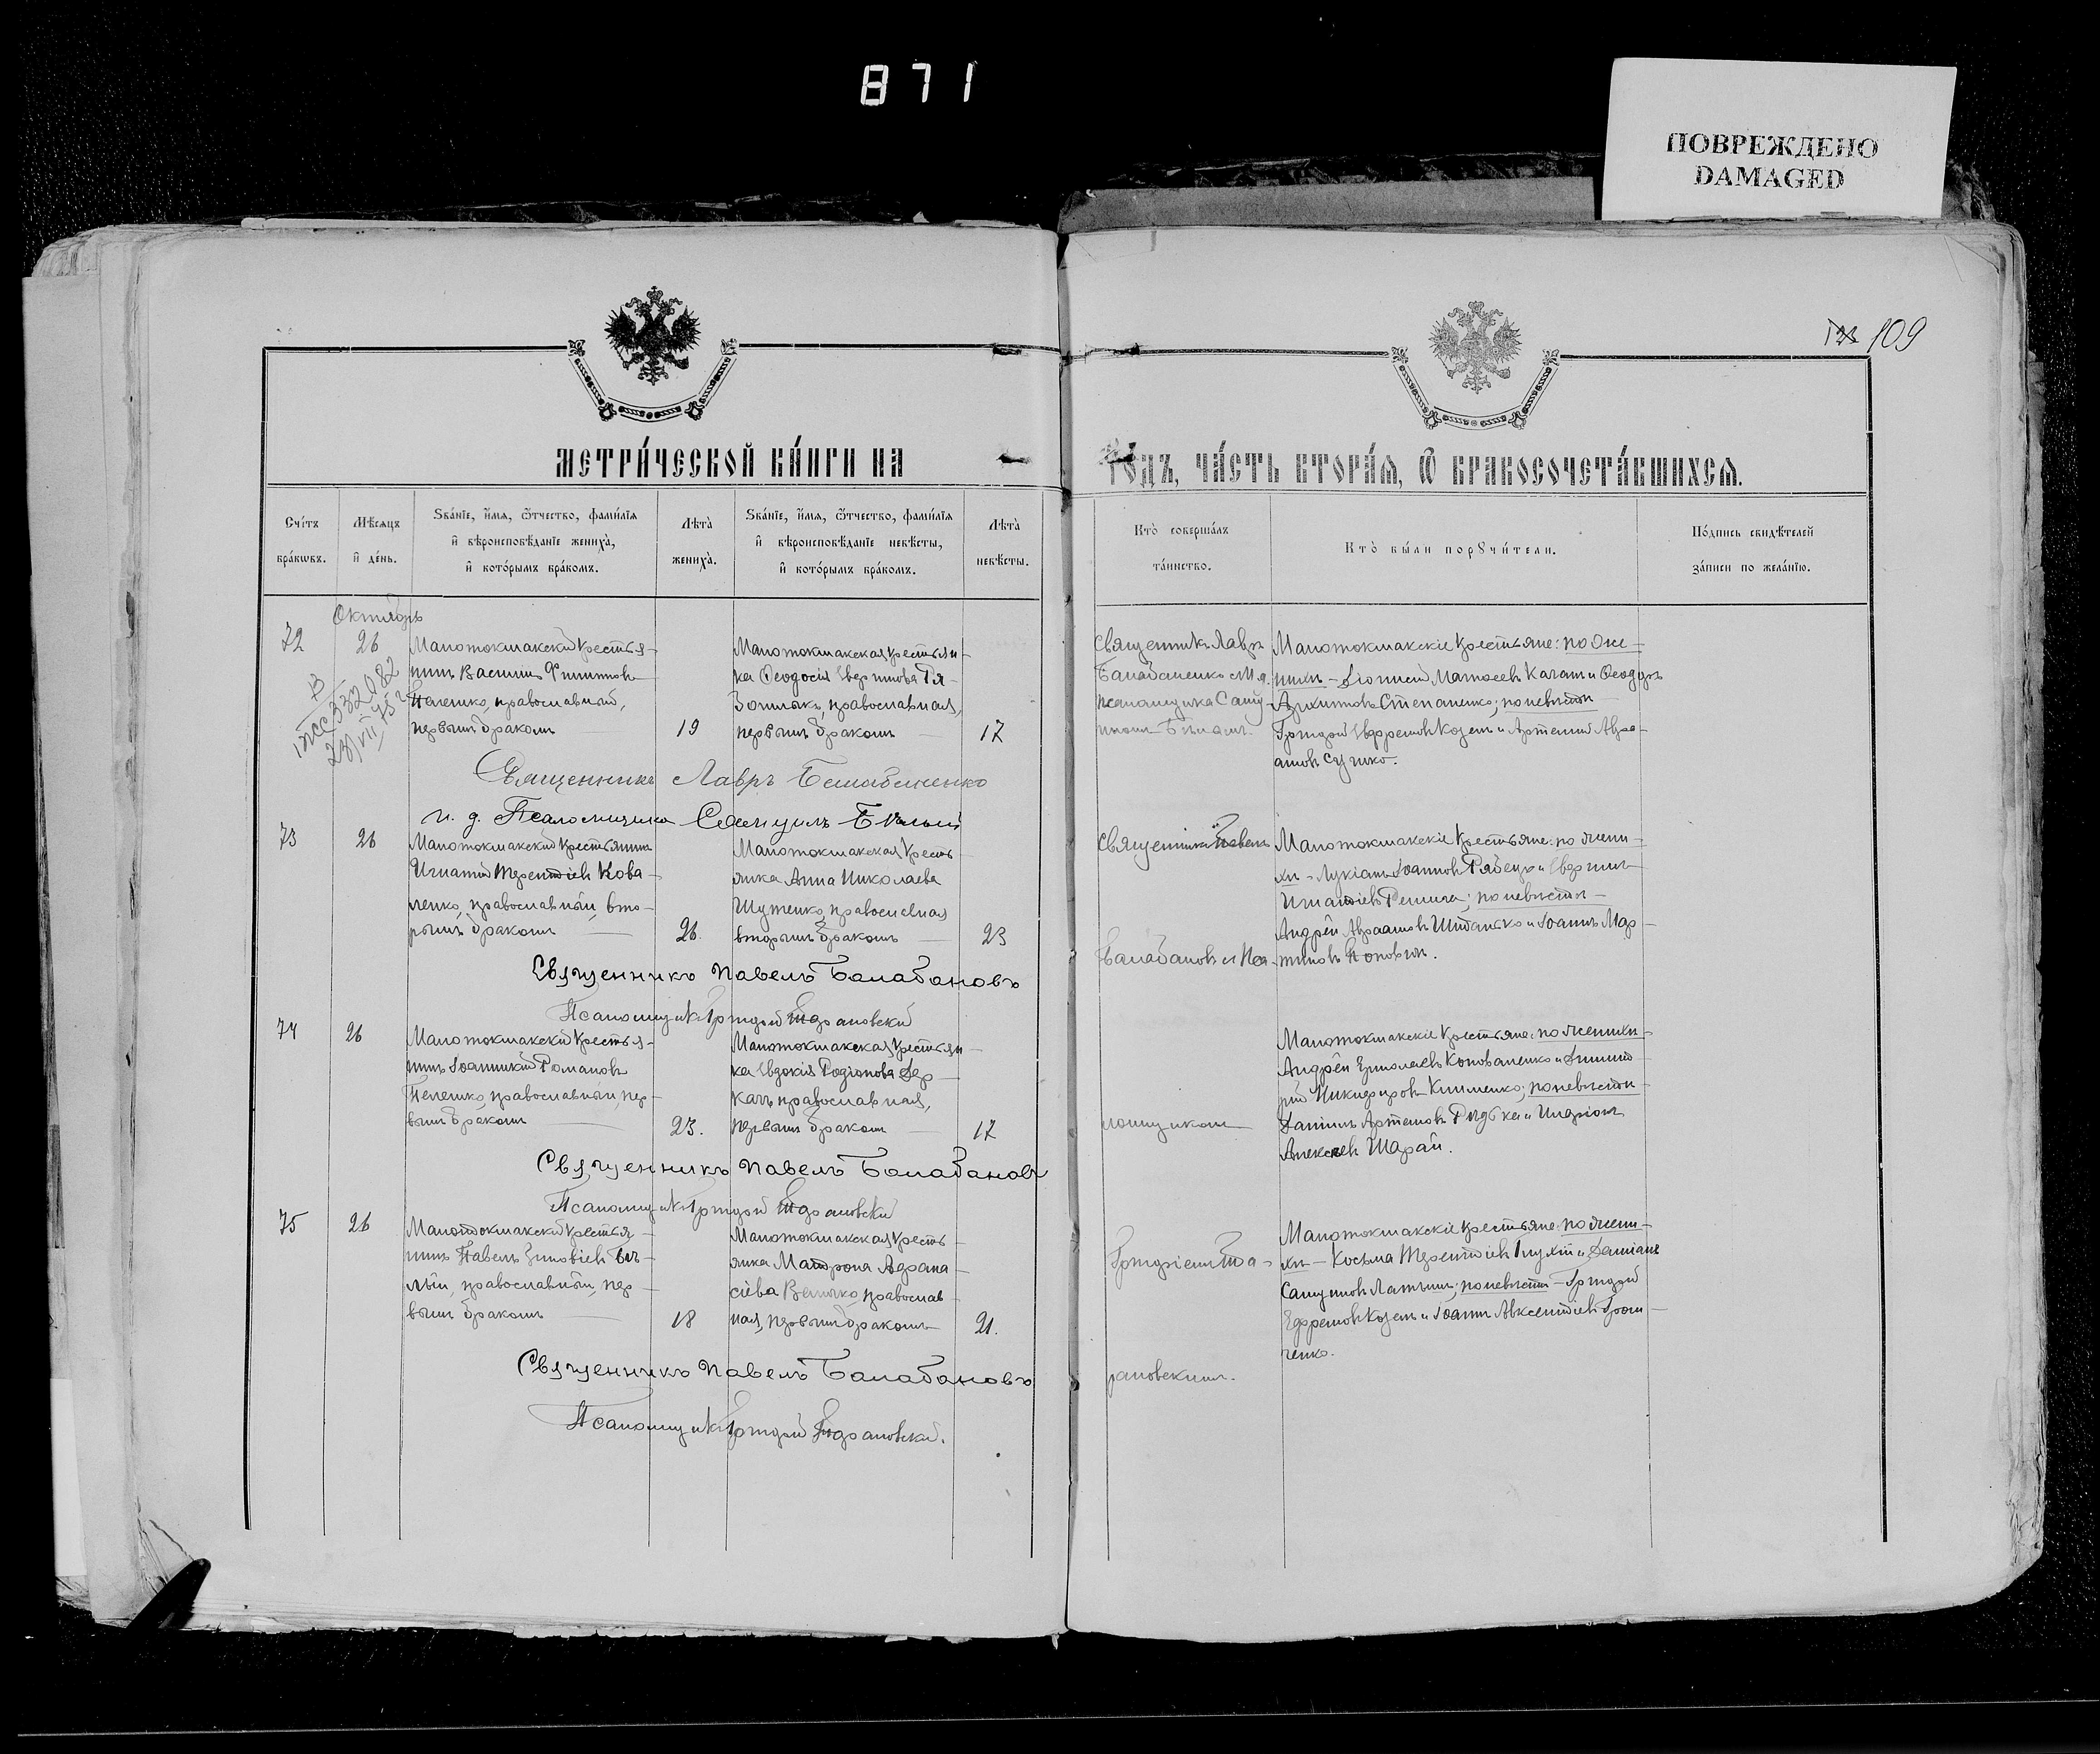 871
ПОВРЕЖДЕНО
DAMAGED
109
МЕТРИ́ЧЕСКОЙ КНИ́ГИ НА
ГО́ДЪ, ЧА́СТЬ ВТОРА́Я, Ѡ БРАКОСОЧЕТА́ВШИХСЯ.
Сче́тъ бра́кѡвъ.
Мѣ́сяцъ и҆ де́нь.
Ѕва́нїе, и҆́мя, ѻ҆́тчество, фами́лїя и҆ вѣроисповѣ́данїе жениха̀, и҆ кото́рымъ бра́комъ.
Лѣта̀ жениха̀.
Ѕва́нїе, и҆́мя, ѻ҆́тчество, фами́лїя и҆ вѣроисповѣ́данїе невѣ́сты, и҆ кото́рымъ бра́комъ.
Лѣта̀ невѣ́сты.
Кто̀ соверша́лъ та́инство.
Кто̀ бы́ли порꙋчи́тели.
По́дпись свидѣ́телей за́писи по жела́нїю.
Октябрь
72
26
Малотокмакскій крестья-
нинъ Василій Филипповъ
Телешко, православный,
первымъ бракомъ
19
Малотокмакская крестьян-
ка Ѳеодосія
православная,
первымъ бракомъ
17
Священникъ Лавръ
Малотокмакскіе крестьяне: по же-
нихѣ - Діонисій Матѳеевъ и Ѳеодоръ
Степаненко; по невѣстѣ
Григорій Ефремовъ Козелъ и Артемій Авра-
амовъ Сушко.
Священникъ Лавръ
и. д. Псаломщика Самуилъ Бѣлый
73
26
Малотокмакскій крестьянинъ
Игнатій Терентіевъ Кова-
ленко, православный, вто-
рымъ бракомъ
26
Малотокмакская кресть-
янка Анна Николаева
Шутенко, православная
вторымъ бракомъ
23
Священникъ Павелъ
Балабановъ и Пса-
Малотокмакскіе крестьяне: по жени-
хѣ - Лукіанъ Іоанновъ Рябецъ и
Игнатіевъ по невѣстѣ -
Андрей Авраамовъ и Іоаннъ Мар-
тиновъ
Священникъ Павелъ Балабановъ
Псаломщикъ Григорій
74
26
Малотокмакскій крестья-
нинъ Іоанникій Романовъ
Телешко, православный, пер-
вымъ бракомъ
23.
Малотокмакская крестьян-
ка Евдокія Родіонова Дер-
качъ православная,
первымъ бракомъ
17
ломщикомъ
Малотокмакскіе крестьяне: по женихѣ
Андрей Ермолаевъ Коноваленко и Димит-
рій Никифоровъ Клименко; по невѣстѣ
Даніилъ Артемовъ Рѣдька и Иларіонъ
Алексѣевъ Шарай.
Священникъ Павелъ Балабановъ
Псаломщикъ Григорій
75
26
Малотокмакскій крестья-
нинъ Павелъ Зиновіевъ Бѣ-
лый, православный, пер-
вымъ бракомъ
18
Малотокмакская кресть-
янка Матрона Аѳана-
сіева Величко, православ-
ная, первымъ бракомъ
21.
Малотокмакскіе крестьяне: по жени-
хѣ - Косьма Терентіевъ Глухій и Даміанъ
по невѣстѣ - Григорій
Ефремовъ Козелъ и Іоаннъ Авксентіевъ Гром-
ченко.
рановскимъ.
Священникъ Павелъ Балабановъ
Псаломщикъ Григорій